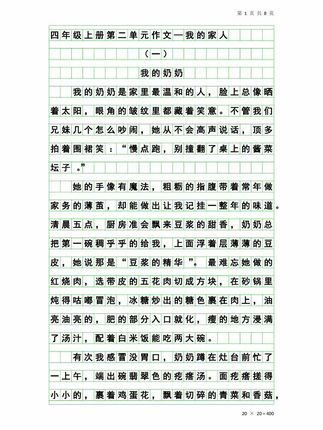 第 1 页 共 8 页
四年级上册第二单元作文—我的家人
（一）
我的奶奶
我的奶奶是家里最温和的人，脸上总像晒
着太阳，眼角的皱纹里都藏着笑意。不管我们
兄妹几个怎么吵闹，她从不会高声说话，顶多
拍着围裙笑：“慢点跑，别撞翻了桌上的酱菜
坛子。”
她的手像有魔法，粗粝的指腹带着常年做
家务的薄茧，却能做出让我记挂一整年的味道。
清晨五点，厨房准会飘来豆浆的甜香，奶奶总
把第一碗稠乎乎的给我，上面浮着层薄薄的豆
皮，她说那是“豆浆的精华”。最难忘她做的
红烧肉，选带皮的五花肉切成方块，在砂锅里
炖得咕嘟冒泡，冰糖炒出的糖色裹在肉上，油
亮油亮的，肥的部分入口就化，瘦的地方浸满
了汤汁，配着白米饭能吃两大碗。
有次我感冒没胃口，奶奶蹲在灶台前忙了
一上午，端出碗翡翠色的疙瘩汤。面疙瘩搓得
小小的，裹着鸡蛋花，飘着切碎的青菜和香菇，
20 × 20＝400